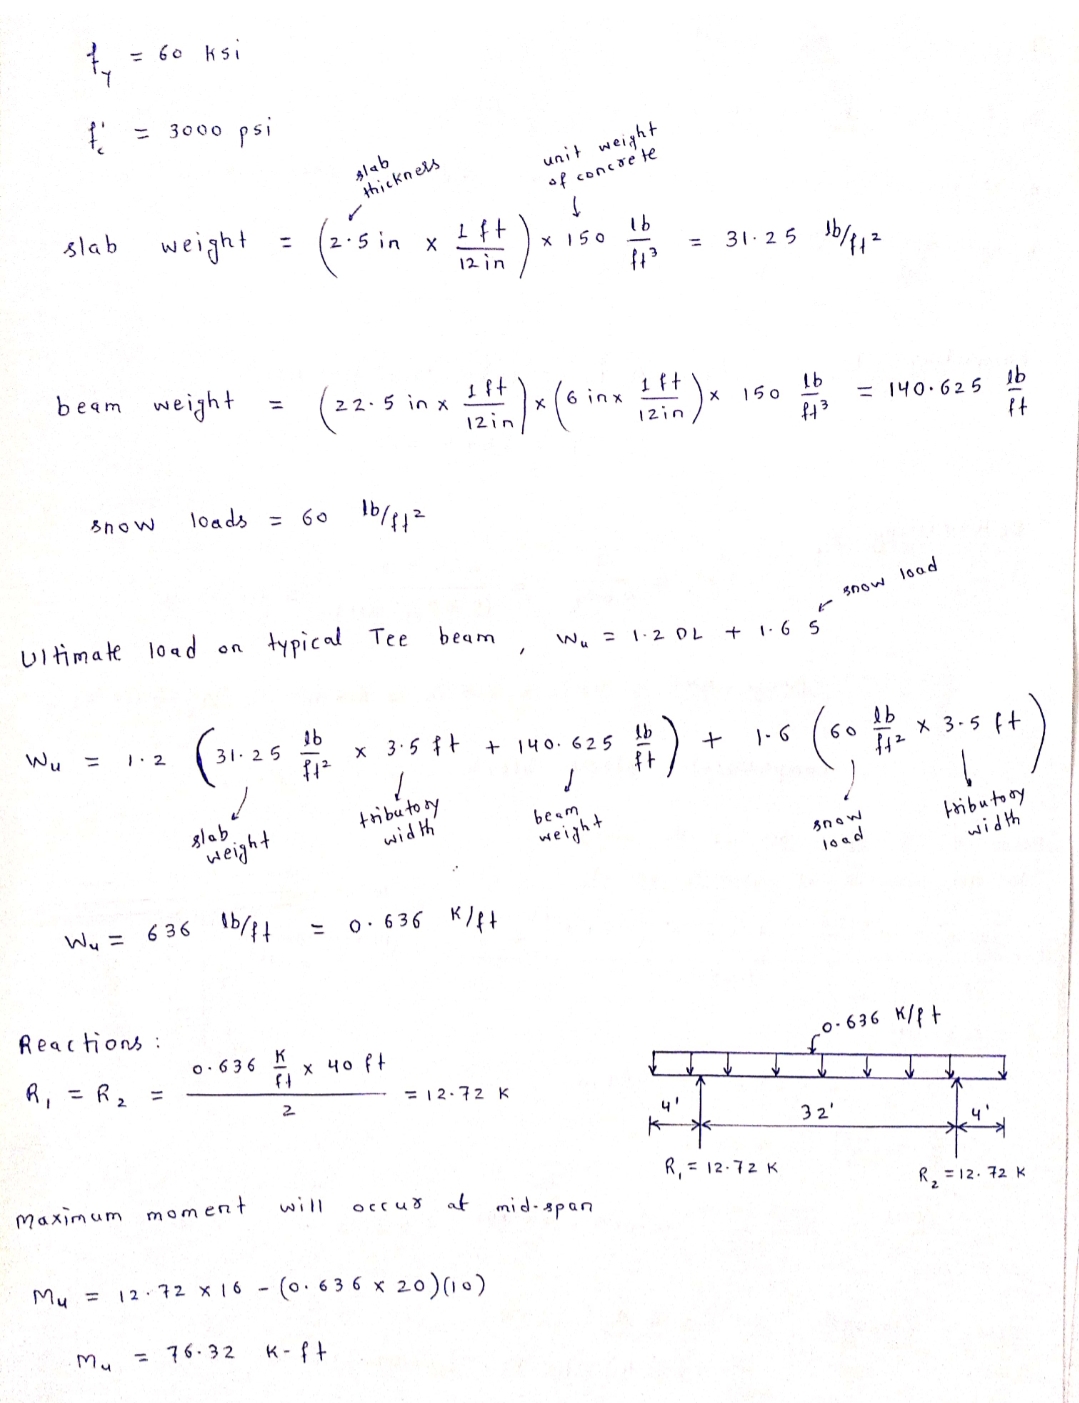 fy = 60 ksi
f'c = 3000 psi
slab thickness
unit weight of concrete
slab weight = (2.5 in x 1 ft / 12 in) x 150 lb/ft³ = 31.25 lb/ft²
beam weight = (22.5 in x 1 ft / 12 in) x (6 in x 1 ft / 12 in) x 150 lb/ft³ = 140.625 lb/ft
snow loads = 60 lb/ft²
snow load
Ultimate load on typical Tee beam, Wu = 1.2 DL + 1.6 S
Wu = 1.2 (31.25 lb/ft² x 3.5 ft + 140.625 lb/ft) + 1.6 (60 lb/ft² x 3.5 ft)
slab weight
tributory width
beam weight
snow load
tributory width
Wu = 636 lb/ft = 0.636 K/ft
Reactions:
R₁ = R₂ = (0.636 K/ft x 40 ft) / 2 = 12.72 K
0.636 K/ft
4' 32' 4'
R₁ = 12.72 K
R₂ = 12.72 K
Maximum moment will occur at mid-span
Mu = 12.72 x 16 - (0.636 x 20)(10)
Mu = 76.32 K-ft